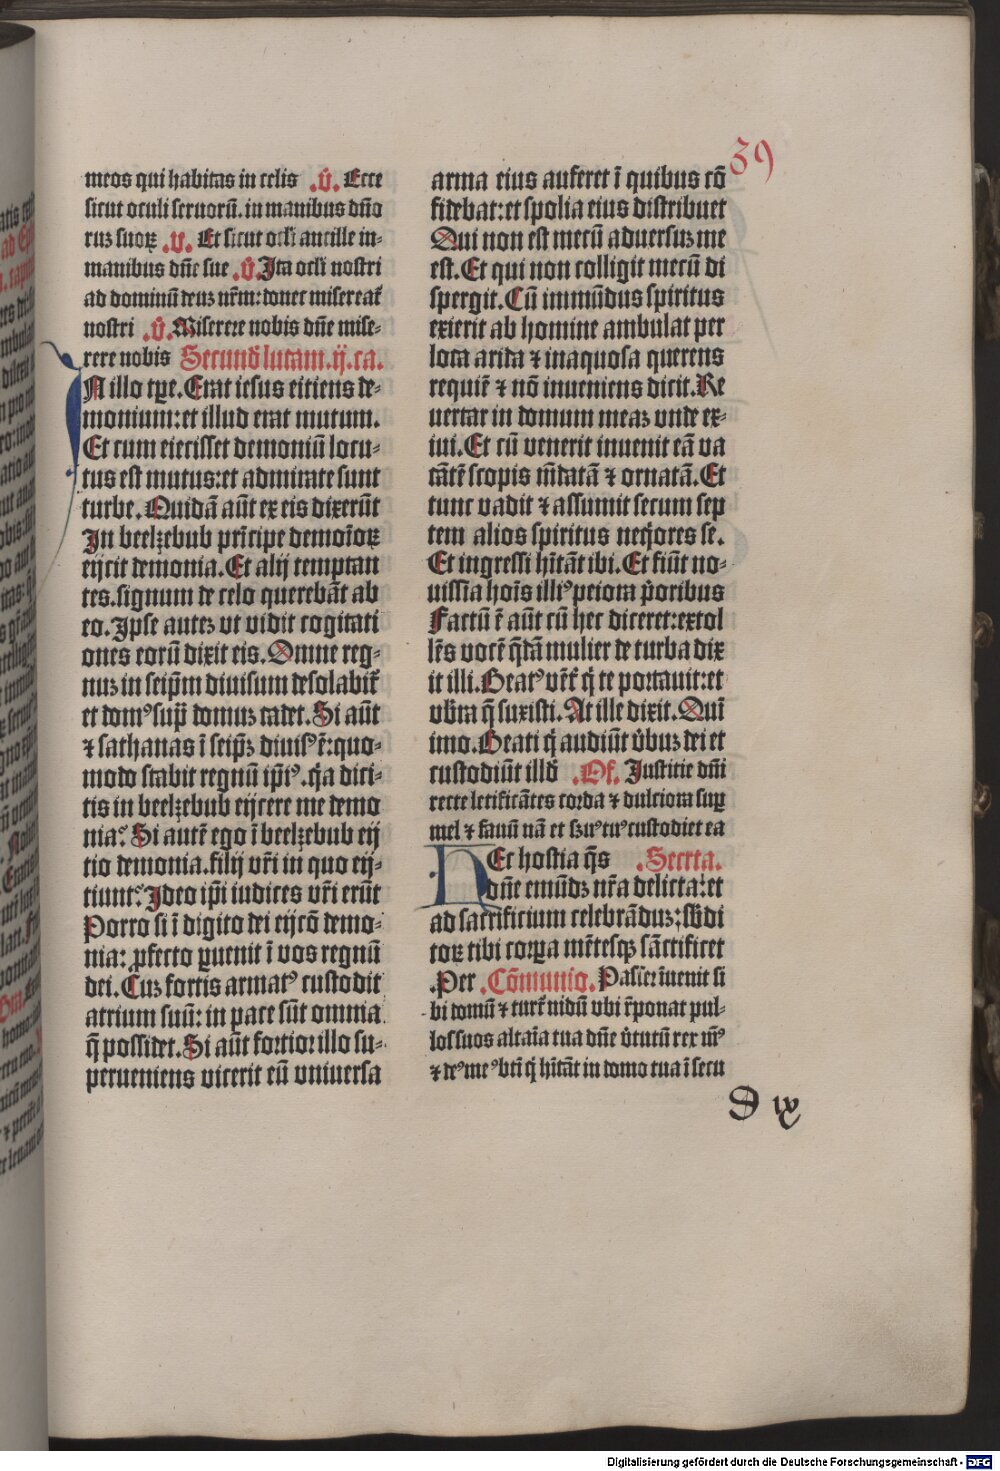 39
meos qui habitas in celis .v̂. Ecce
sicut oculi seruorū. in manibus dño
ruz suoꝝ .v. Et sicut ocli ancille in-
manibus dñe sue .v̂. Ita ocli nostri
ad dominū deuz nr̄m: donec misereat̄
nostri .v̂. Miserere nobis dñe mise-
rere nobis Secund̄ lucam.ij.ca.
IN illo tꝑe. Erat iesus eitiens de-
monium: et illud erat mutum.
Et cum eiecisset demoniū locu-
tus est mutus: et admirate sunt
turbe. Quidā aūt ex eis dixerūt
In beelzebub prīcipe demoīoꝝ
eijcit demonia. Et alij temptan
tes. signum de celo querebāt ab
eo. Ipse autez vt vidit cogitati
ones eorū dixit eis. Omne reg-
nuz in seip̄m diuisum desolabit̄
et domꝰ sup̄ domuz cadet. Si aūt
⁊ sathanas ī seip̄z diuisꝰ ē: quo-
modo stabit regnū ip̄iꝰ. q̇a dici-
tis in beelzebub eijcere me demo
nia. Si autē ego ī beelzebub eij
tio demonia. filij vr̄i in quo eij-
tiunt. Ideo ip̄i iudices vr̄i erūt
Porro si ī digito dei eijcō demo-
nia: ꝓfecto ꝑuenit ī vos regnū
dei. Cuz fortis armatꝰ custodit
atrium suū: in pace sūt omnia
q̄ possidet. Si aūt fortior illo su-
perueniens vicerit eū vniuersa
arma eius auferet ī quibus cō
fidebat: et spolia eius distribuet
Qui non est mecū aduersuz me
est. Et qui non colligit mecū di
spergit. Cū immūdus spiritus
exierit ab homine ambulat per
loca arida ⁊ inaquosa querens
requiē ⁊ nō inueniens dicit. Re
uertar in domum meaz vnde ex-
iui. Et cū venerit inuenit eā va
cātē scopis mūdatā ⁊ ornatā. Et
tunc vadit ⁊ assumit secum sep
tem alios spiritus neq̇ores se.
Et ingressi hītāt ibi. Et fiūt no-
uissīa hoīs illiꝰ peiora p̄oribus
Factū ē aūt cū hec diceret: extol
lēs vocē q̄dā mulier de turba dix
it illi. Beatꝰ vēt̄ q̇ te portauit: et
vb̄ra q̄ suxisti. At ille dixit. Quī
imo. Beati q̇ audiūt v̄buz dei et
custodiūt illd̄ .Of. Iusticie dn̄i
recte letificātes corda ⁊ dulciora suꝑ
mel ⁊ fauū nā et s̄zuꝰ tuꝰ custodiet ea
HEc hostia q̄s .Secrta.
dn̄e emūdz nr̄a delicta: et
ad sacrificium celebrāduz: sb̄di
toꝝ tibi corꝑa mētesqz sāctificet
.Per .Cōmunio. Passer īuenit si
bi domū ⁊ turt̄ nidū vbi r̄ponat pul-
los suos altaīa tua dn̄e v̄tutū rex mꝰ
⁊ deꝰ meꝰ bt̄i q̇ hītāt in domo tua ī secu
D ix
Digitalisierung gefördert durch die Deutsche Forschungsgemeinschaft - DFG